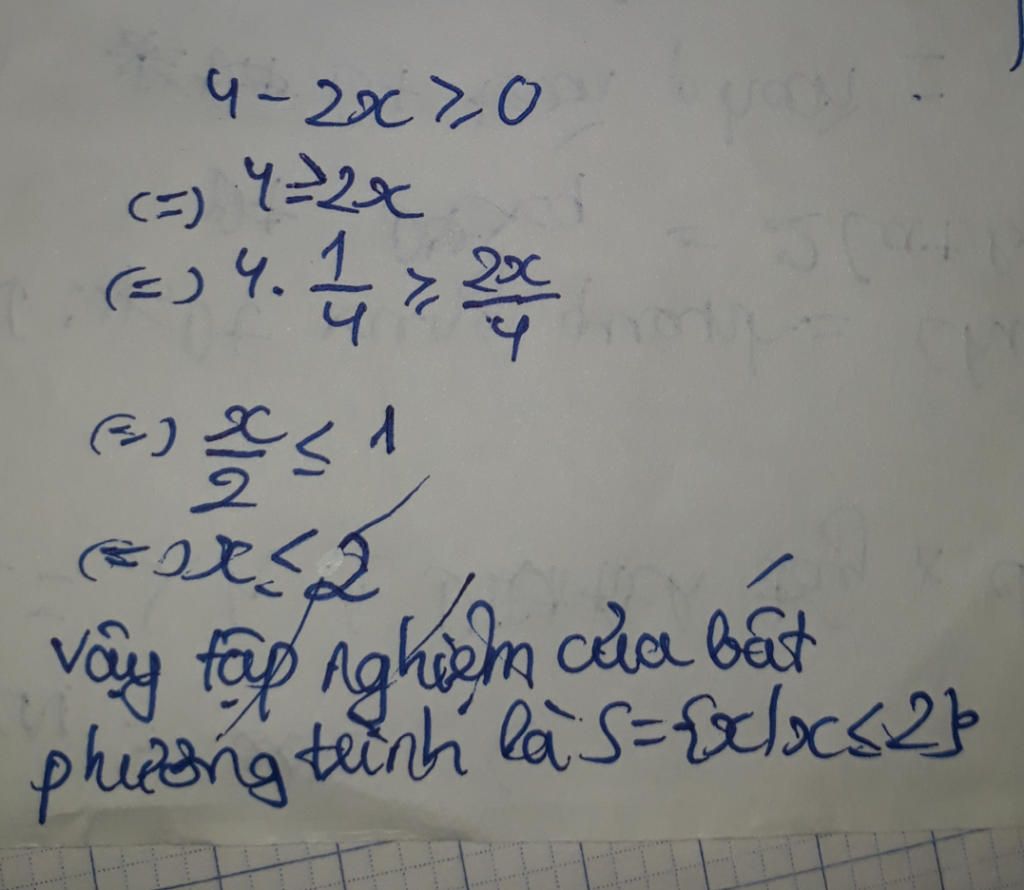 4 - 2x ≥ 0
(=) 4 ≥ 2x
(=) 4 . 1/4 ≥ 2x/4
(=) x/2 ≤ 1
(=) x ≤ 2
Vậy tập nghiệm của bất
phương trình là S = {x/x ≤ 2}